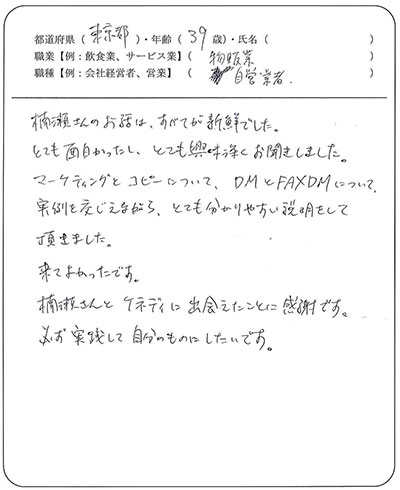 都道府県（東京都）・年齢（39歳）・氏名（　　　）
職業【例：飲食業、サービス業】（物販業）
職種【例：会社経営者、営業】（自営業者.）
楠瀬さんのお話は、すべてが新鮮でした。
とても面白かったし、とても興味深くお聞きしました。
マーケティングとコピーについて、DMとFAXDMについて、
実例を交じえながら、とても分かりやすい説明をして
頂きました。
来てよかったです。
楠瀬さんとケネディに出会えたことに感謝です。
必ず実践して自分のものにしたいです。